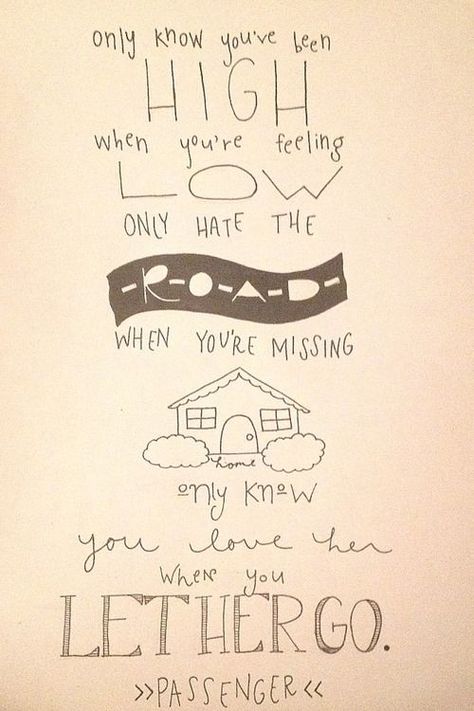 only know you've been
HIGH
when you're feeling
LOW
ONLY HATE THE
-R-O-A-D-
WHEN YOU'RE MISSING
home
only know
you love her
when you
LET HER GO.
>>PASSENGER<<